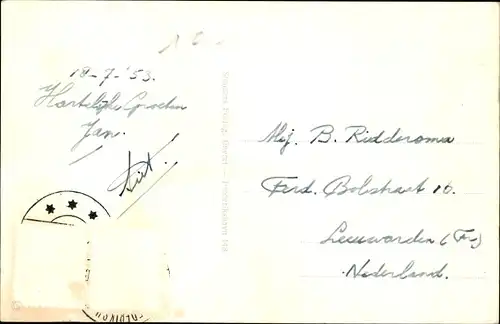 18-7-'53.
Hartelijke Groeten
Jan.
Mej. B. Riddersma
Ferd. Bolstraat 16.
Leeuwarden (Fr.)
Nederland.